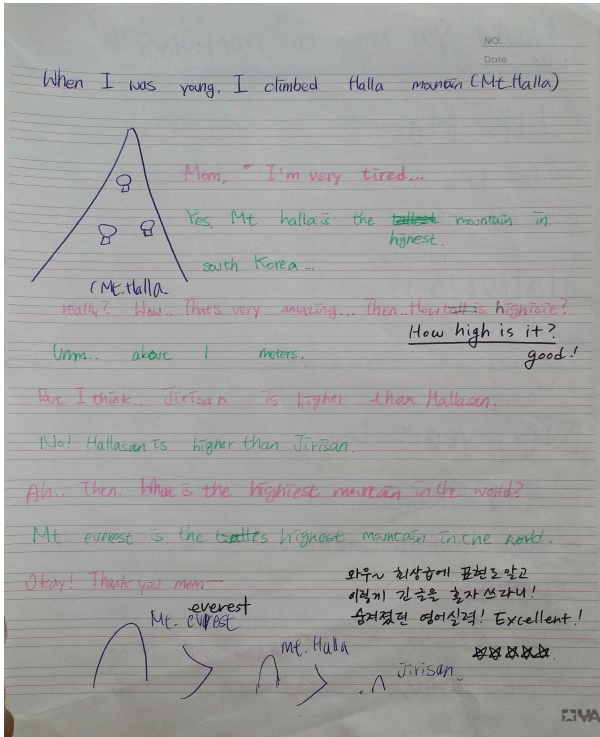 NO.
Date
When I was young, I climbed Halla mountain (Mt. Halla)
Mom, I'm very tired...
Yes, Mt halla is the tallest mountain in
highest.
south Korea...
(Mt. Halla
really? Wow.. That's very amazing... Then.. How tall is highisit?
How high is it?
good!
Umm.. about 1 meters.
But I think.. Jirisan is higher than Hallasan.
No! Hallasan is higher than Jirisan.
Ah.. Then.. What is the highiest mountain in the world?
Mt everest is the talles highest mountain in the world.
Okay! Thank you mom
와우~ 최상급에 표현도 알고
이렇게 긴 글을 혼자 쓰다니!
숨겨졌던 영어실력! Excellent!
everest
Mt. everest
Mt. Halla
Jirisan.